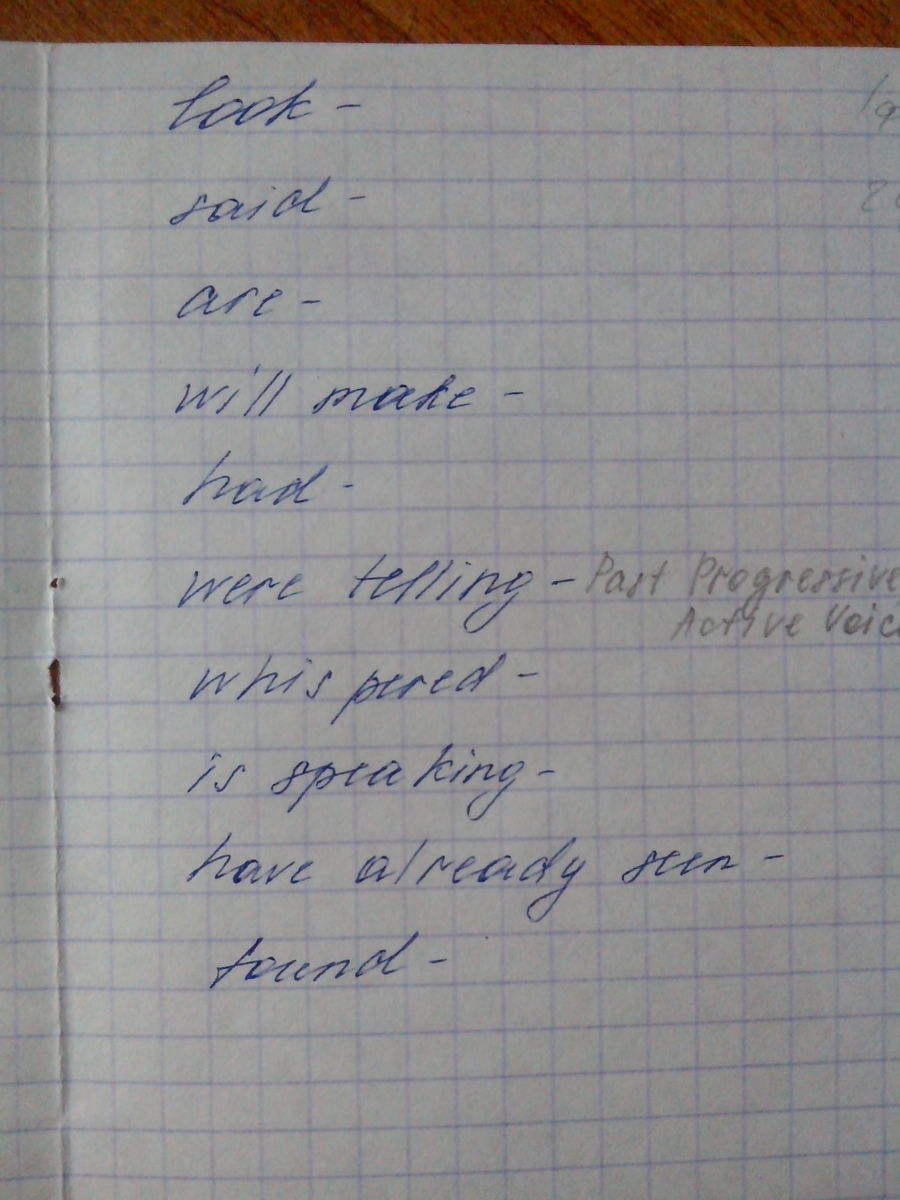 look -
said -
are -
will make -
had -
were telling - Past Progressive
Active Voic
whispered -
is speaking -
have already seen -
found -